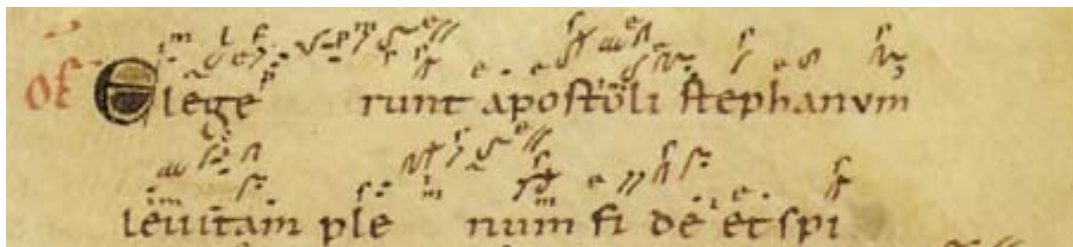 OF Elege runt apostoli stephanvm
leuitam ple num fi de et spi